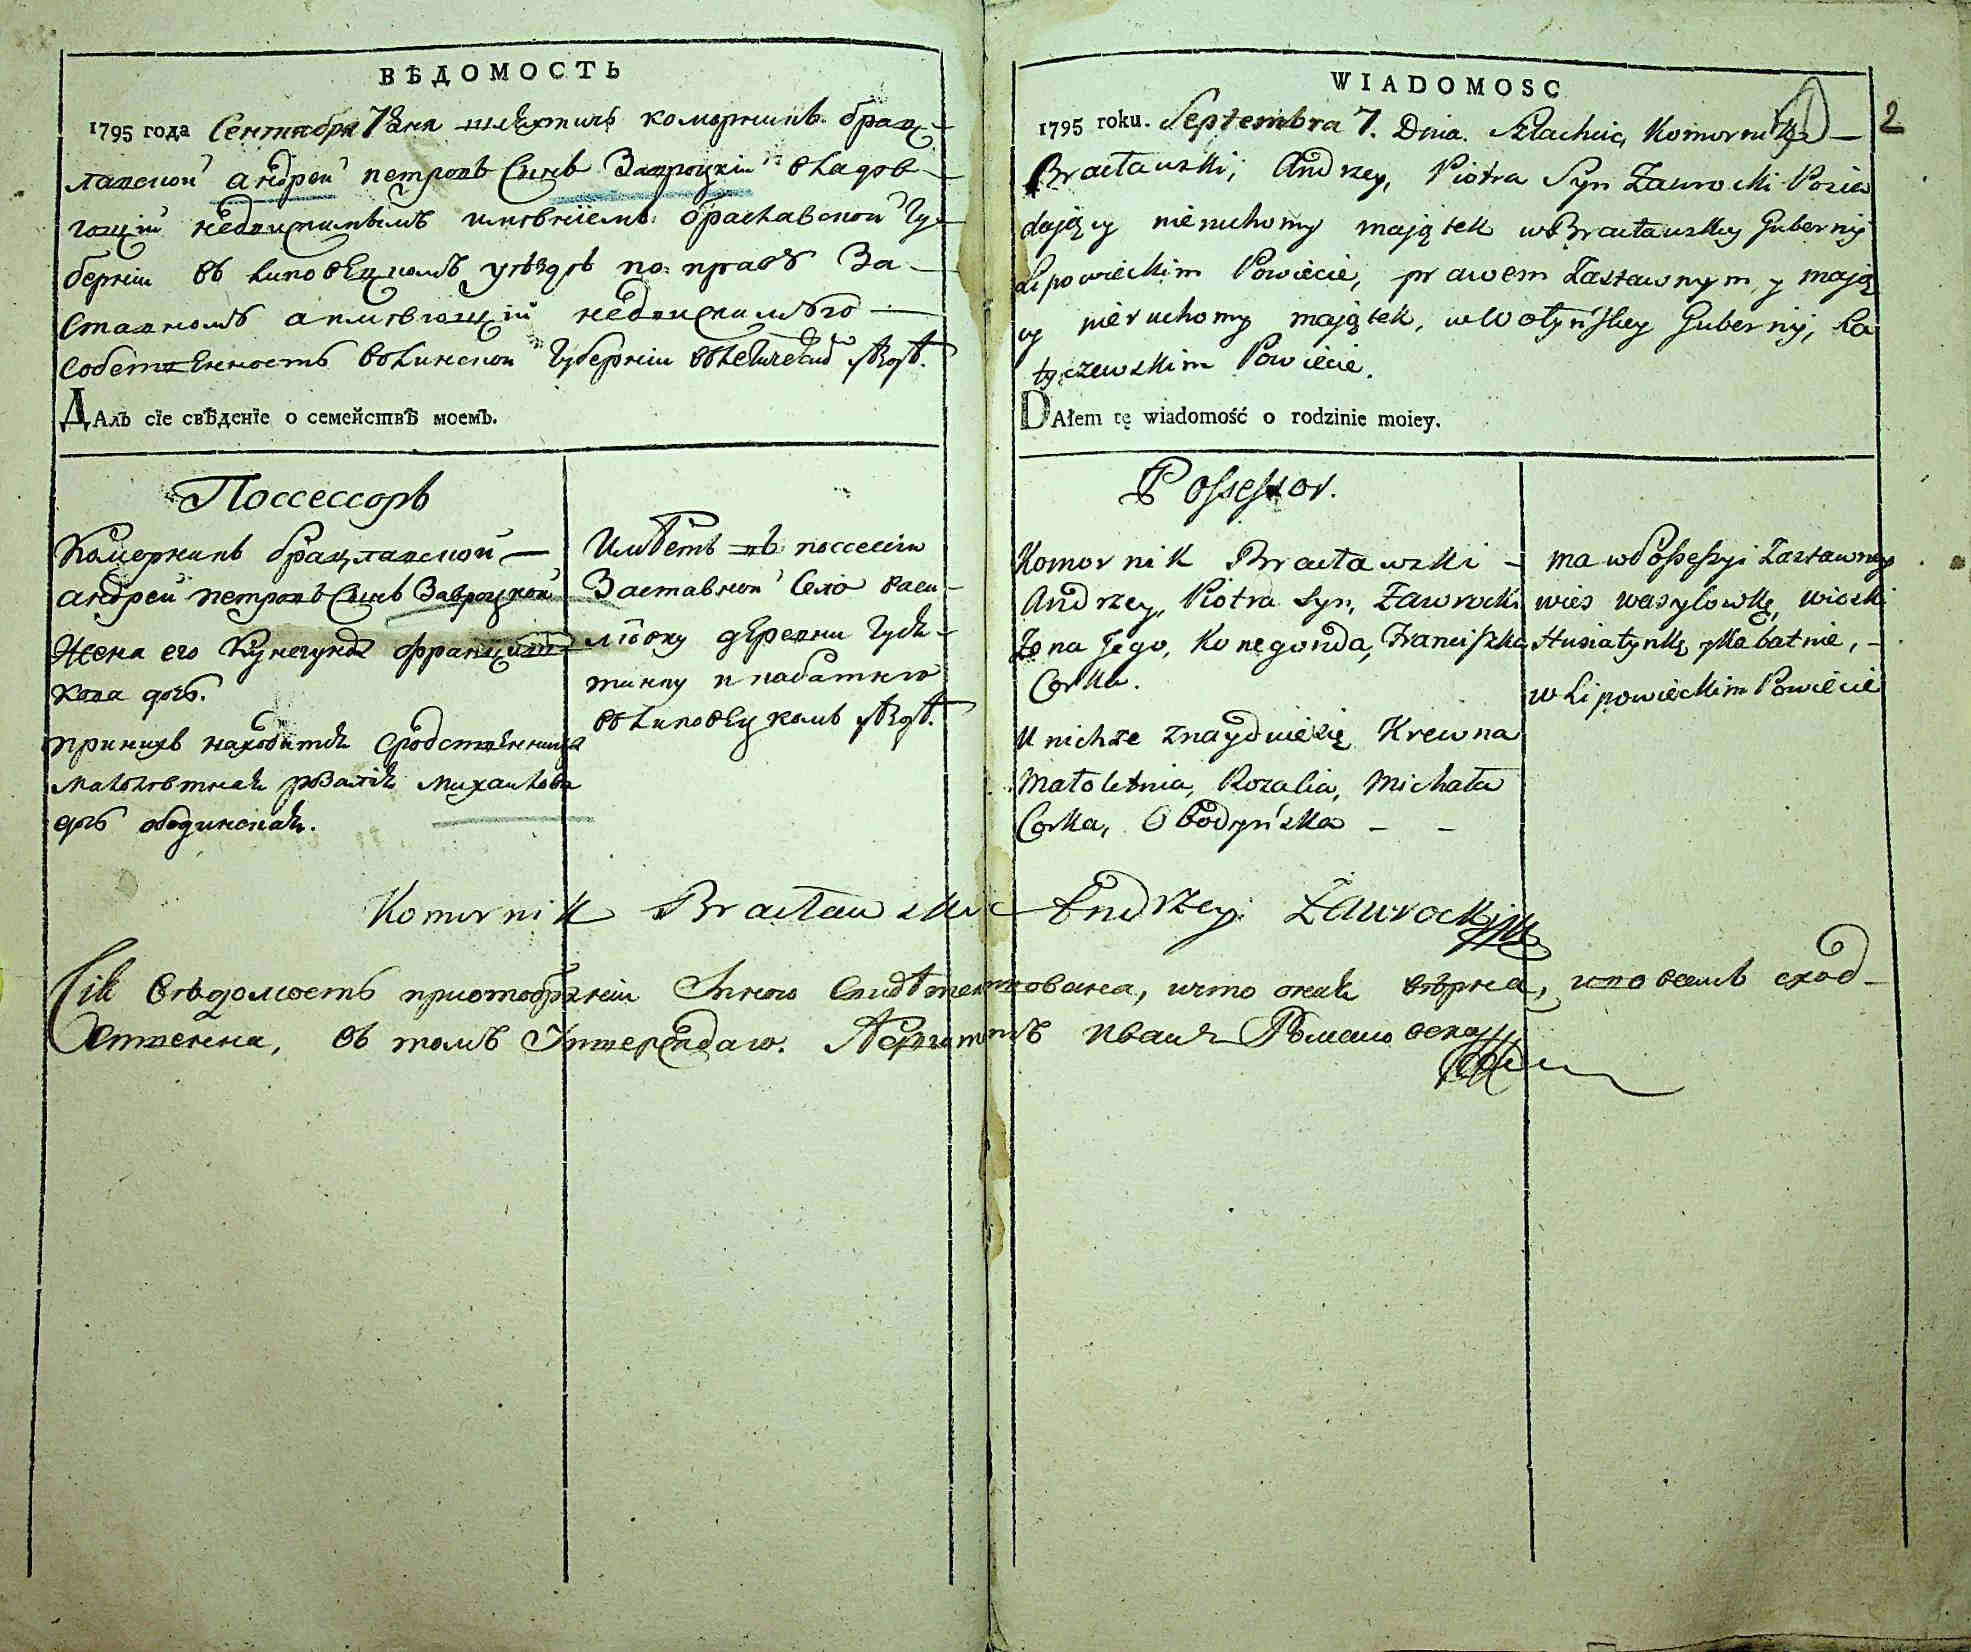 ВѢДОМОСТЬ
1795 года Сентября 7 дня шляхтичъ коморникъ брац-
лавской андрей петровъ Сынъ Завроцкій владѣ-
ющій недвижимымъ имѣніемъ браславской Гу-
берніи въ липовецкомъ уѣздѣ по правѣ За-
ставномъ а имѣющій недвижимаго
собственность волинской Губерніи
ДАлъ сїе свѣденїе о семействѣ моемъ.
Поссессоръ
Коморникъ брацлавской
андрей петровъ Сынъ Завроцкой
Жена его Кунегунда францишкова дочь.
при нихъ находится сродственница
малолѣтная розалія михайлова
дочь ободинская.
Имѣетъ въ поссесіи
Заставной Село васи-
лїовку деревни Гуся-
тинку и кабатню
въ липовецкомъ уѣздѣ.
WIADOMOSC
2
1795 roku. Septembra 7. Dnia. Szlachcic, Komornik
Bracławski, Andrzey, Piotra Syn Zawrocki Posia
dający nieruchomy majątek w Bracławskiey Gubernij
Lipowieckim Powiecie, prawem Zastawnym, y mają
cy nieruchomy majątek, w Wołyńskiey Gubernij, La
tyczewskim Powiecie.
DAłem tę wiadomość o rodzinie moiey.
Possessor.
Komornik Bracławski -
Andrzey, Piotra Syn, Zawrocki
Żona Jego, Konegonda, Franciszka
Corka.
U nichże znayduie się Krewna
Małoletnia, Rozalia, Michała
Corka, Obodyńska - -
ma w Possessyi Zastawney
wieś Wasylowkę, wioski
Husiatynkę y Kabatnie, -
w Lipowieckim Powiecie
Komornik Bracławski Andrzey Zawrocki
Сія вѣдомость при отобраніи Оной свидѣтельствована, что оная вѣрна, и по всемъ сход-
ственна, въ томъ Утверждаю. Иванъ